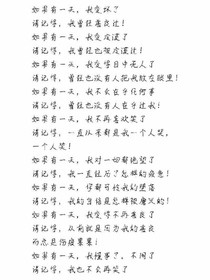 如果有一天，我变坏了
请记得，我曾经善良过！
如果有一天，我变沉默了
请记得，我曾经也很疯过！
如果有一天，我变得目中无人了
请记得，曾经也没有人把我放在眼里！
如果有一天，我不会在乎任何事
请记得，曾经也没有人在乎过我！
如果有一天，我不再喜欢笑了
请记得，一直以来都是我一个人笑，
一个人哭！
如果有一天，我对一切都绝望了
请记得，我一直经历了怎样的疲惫！
如果有一天，你鄙视我的堕落
请记得，我的自信是怎样被磨灭的！
如果有一天，我变得不再善良了
请记得，从前就是因为我的善良
而总是伤痕累累！
如果有一天，我懂事了，不闹了
请记得，我也不会再笑了